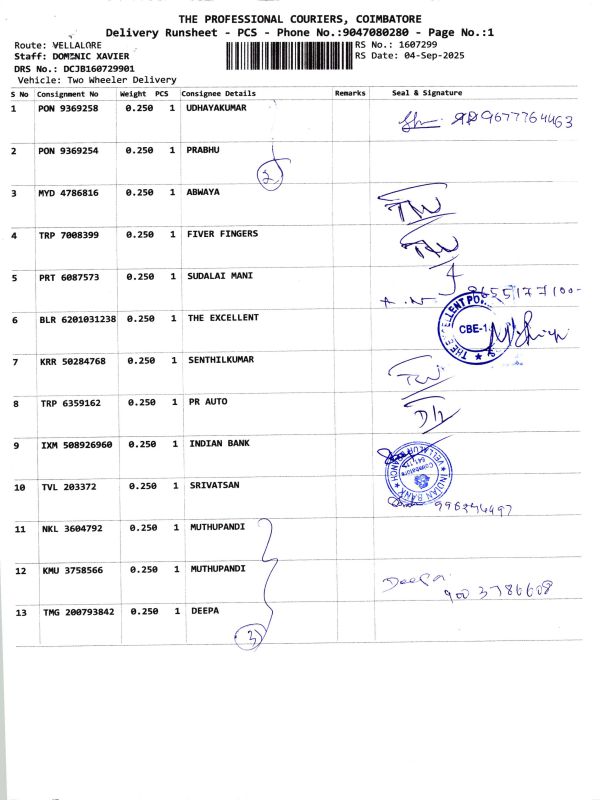 THE PROFESSIONAL COURIERS, COIMBATORE
Delivery Runsheet - PCS - Phone No.:9047080280 - Page No.:1
Route: VELLALORE
RS No.: 1607299
Staff: DOMENIC XAVIER
RS Date: 04-Sep-2025
DRS No.: DCJB160729901
Vehicle: Two Wheeler Delivery
S No Consignment No Weight PCS Consignee Details Remarks Seal & Signature
1 PON 9369258 0.250 1 UDHAYAKUMAR 9677764463
2 PON 9369254 0.250 1 PRABHU
2
3 MYD 4786816 0.250 1 ABWAYA
4 TRP 7008399 0.250 1 FIVER FINGERS
5 PRT 6087573 0.250 1 SUDALAI MANI
6 BLR 6201031238 0.250 1 THE EXCELLENT CBE-1
7 KRR 50284768 0.250 1 SENTHILKUMAR
8 TRP 6359162 0.250 1 PR AUTO
9 IXM 508926960 0.250 1 INDIAN BANK
INDIAN BANK
10 TVL 203372 0.250 1 SRIVATSAN
11 NKL 3604792 0.250 1 MUTHUPANDI
12 KMU 3758566 0.250 1 MUTHUPANDI Deepa
9003786608
13 TMG 200793842 0.250 1 DEEPA
3